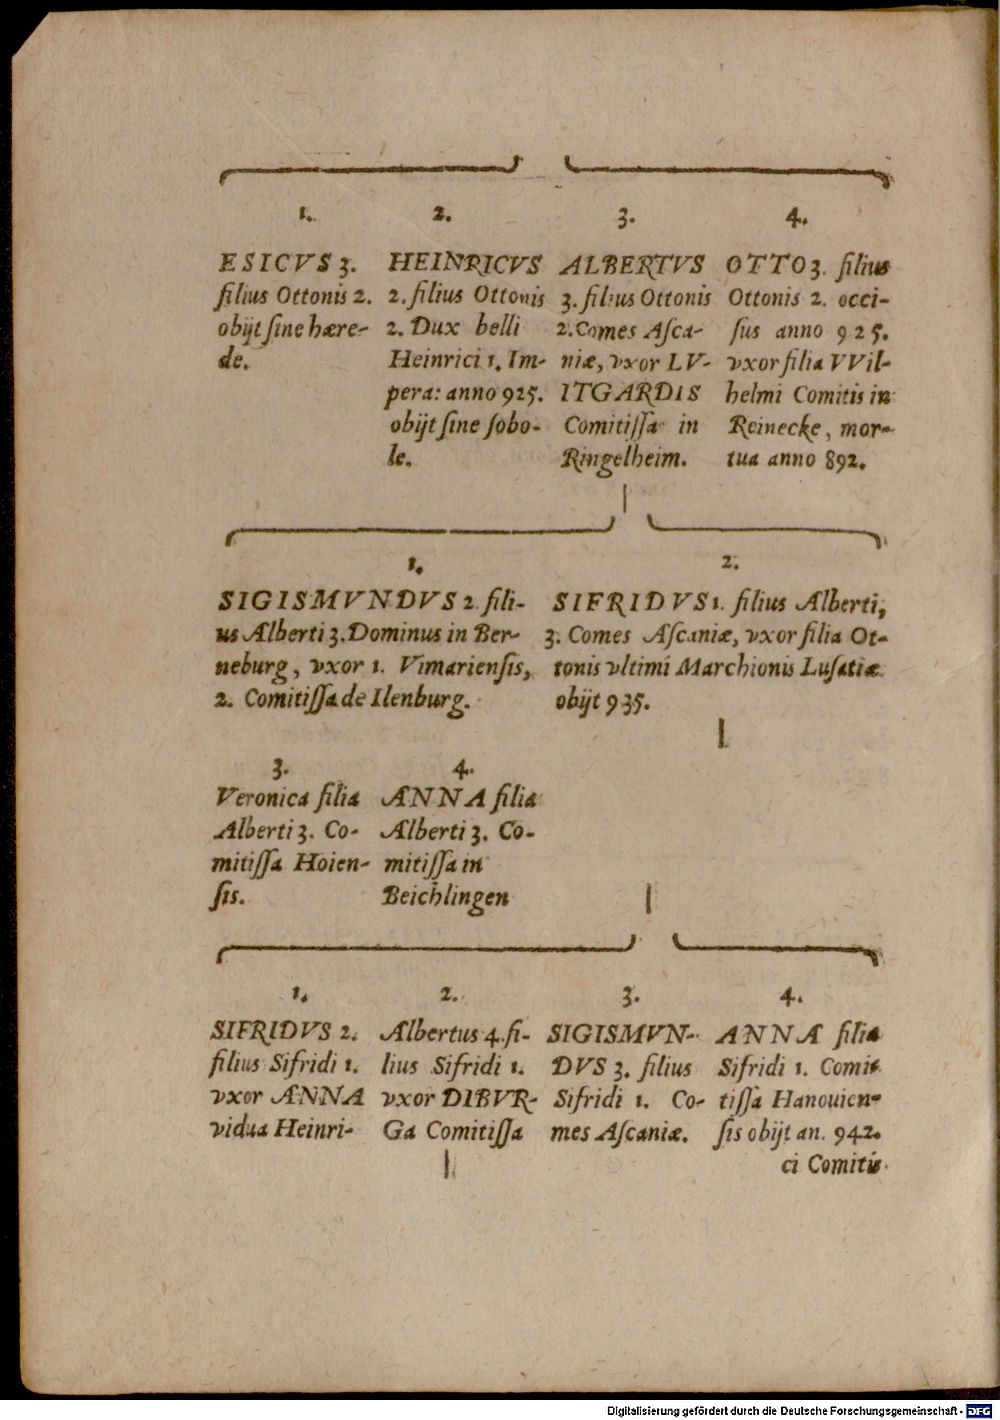 1.
ESICVS 3.
filius Ottonis 2.
obijt sine hære-
de.
2.
HEINRICVS
2. filius Ottonis
2. Dux belli
Heinrici 1. Im-
pera: anno 925.
obijt sine sobo-
le.
3.
ALBERTVS
3. filius Ottonis
2. Comes Asca-
niæ, vxor LV-
ITGARDIS
Comitissa in
Ringelheim.
4.
OTTO 3. filius
Ottonis 2. occi-
sus anno 925.
vxor filia VVil-
helmi Comitis in
Reinecke, mor-
tua anno 892.
1.
SIGISMVNDVS 2 fili-
us Alberti 3. Dominus in Ber-
neburg, vxor 1. Vimariensis,
2. Comitissa de Ilenburg.
2.
SIFRIDVS 1. filius Alberti,
3. Comes Ascaniæ, vxor filia Ot-
tonis vltimi Marchionis Lusatiæ
obijt 935.
3.
Veronica filia
Alberti 3. Co-
mitissa Hoien-
sis.
4.
ANNA filia
Alberti 3. Co-
mitissa in
Beichlingen
1.
SIFRIDVS 2.
filius Sifridi 1.
vxor ANNA
vidua Heinri-
2.
Albertus 4. fi-
lius Sifridi 1.
vxor DIBVR-
GA Comitissa
3.
SIGISMVN-
DVS 3. filius
Sifridi 1. Co-
mes Ascaniæ.
4.
ANNA filia
Sifridi 1. Comi-
tissa Hanouien-
sis obijt an. 942.
ci Comitis
Digitalisierung gefördert durch die Deutsche Forschungsgemeinschaft - DFG